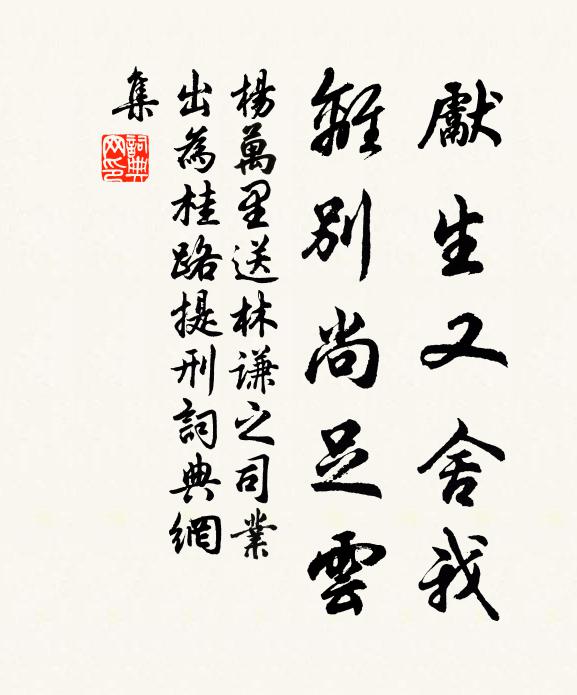 獻生又舍我
離別尚足雲
楊萬里送林謙之司業
出為桂路提刑詞典網
集
詞典網印